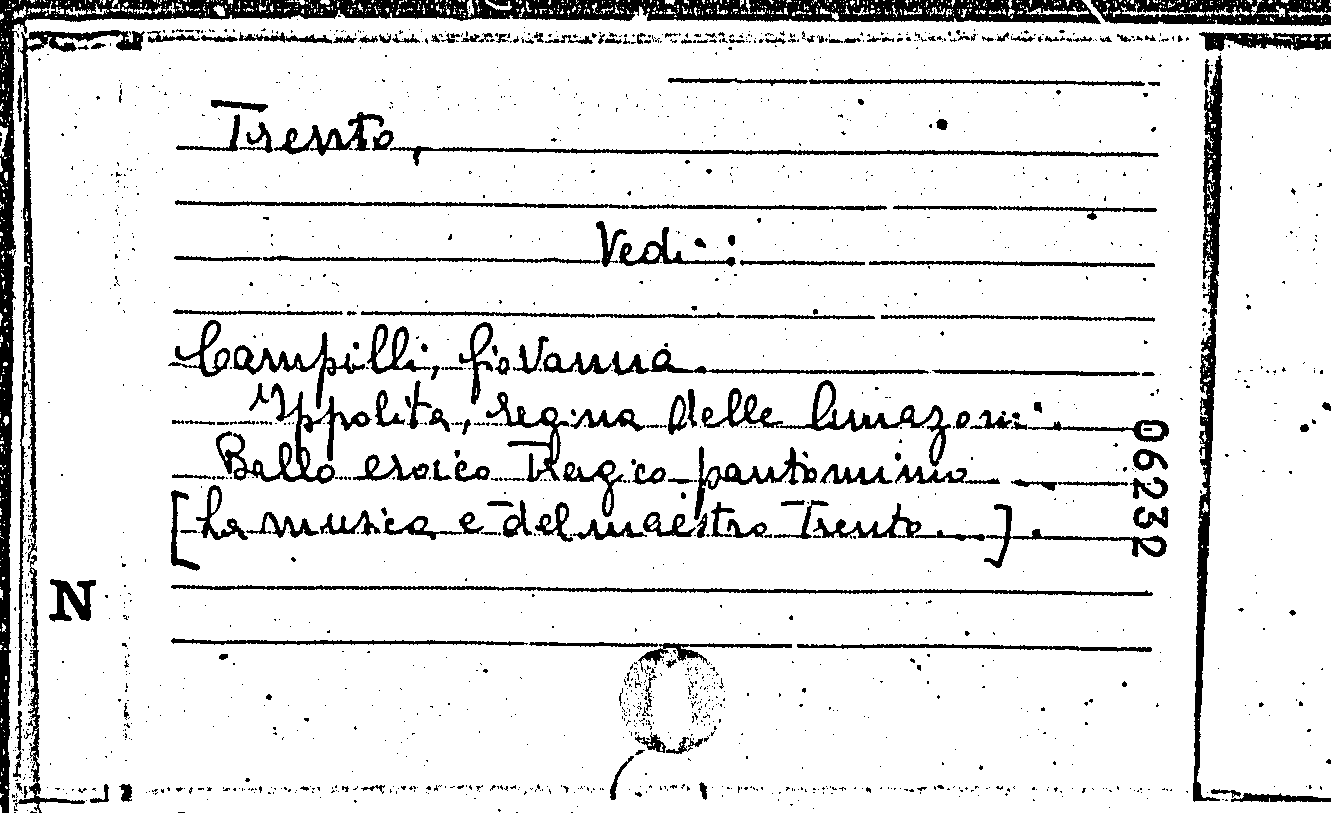 Trento,
Vedi:
Campilli, Giovanna.
Ippolita, regina delle Amazoni.
Ballo eroico tragico pantomimo ...
[La musica e del maestro Trento ...].
06232
N